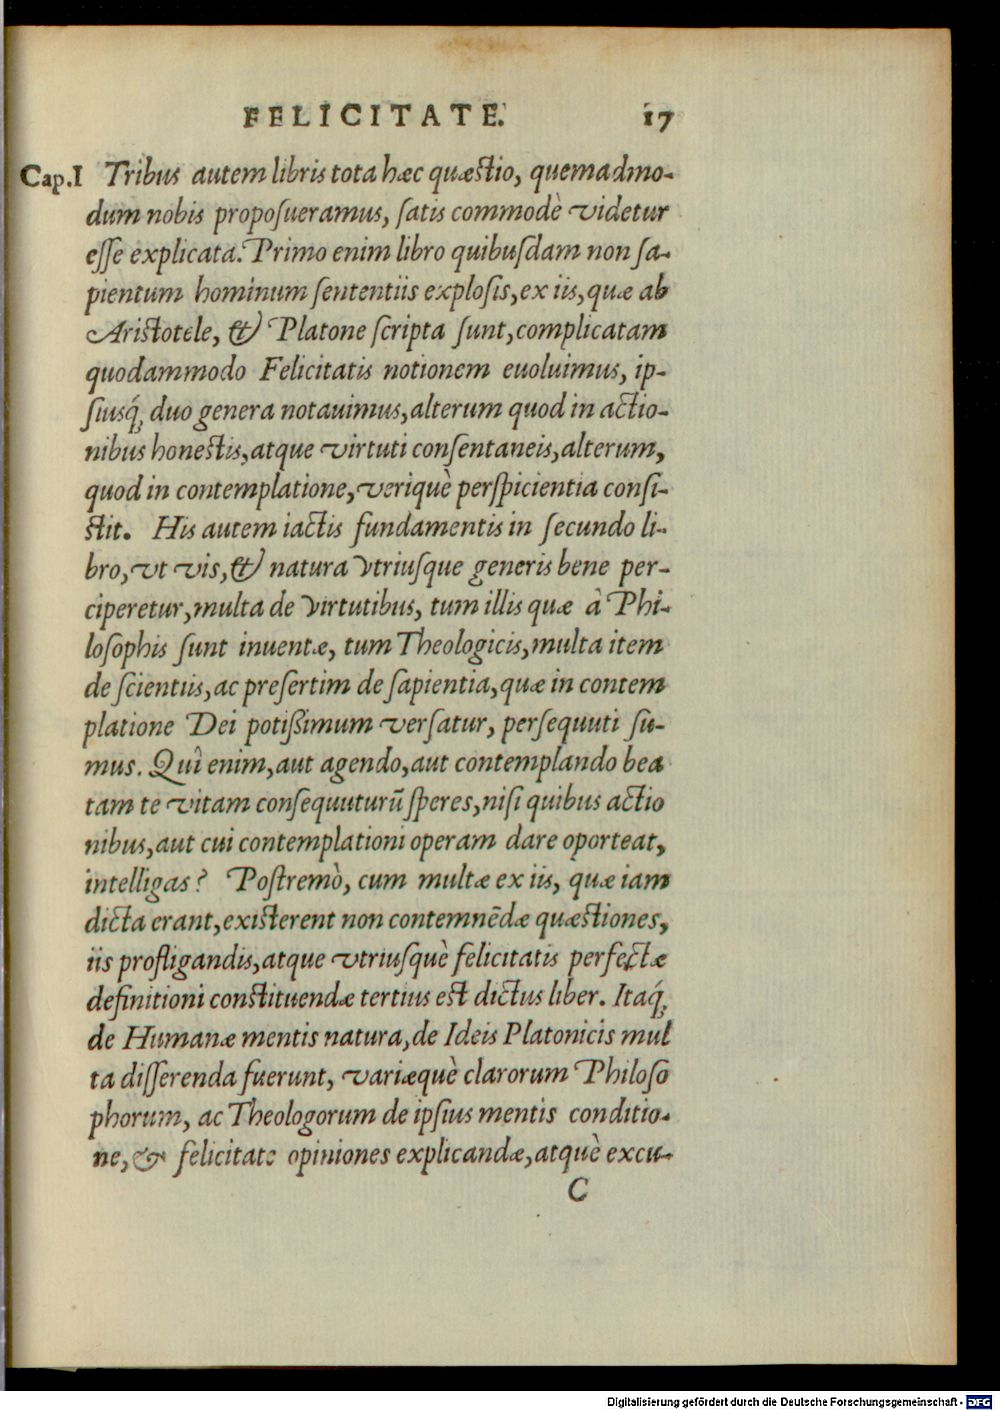 FELICITATE. 17
Cap.I Tribus autem libris tota hæc quæstio, quemadmo-
dum nobis proposueramus, satis commodè videtur
esse explicata. Primo enim libro quibusdam non sa-
pientum hominum sententiis explosis, ex iis, quæ ab
Aristotele, & Platone scripta sunt, complicatam
quodammodo Felicitatis notionem euoluimus, ip-
siusq́; duo genera notauimus, alterum quod in actio-
nibus honestis, atque virtuti consentaneis, alterum,
quod in contemplatione, veriquè perspicientia consi-
stit. His autem iactis fundamentis in secundo li-
bro, vt vis, & natura vtriusque generis bene per-
ciperetur, multa de virtutibus, tum illis quæ à Phi-
losophis sunt inuentæ, tum Theologicis, multa item
de scientiis, ac presertim de sapientia, quæ in contem
platione Dei potißimum versatur, persequuti su-
mus. Quî enim, aut agendo, aut contemplando bea
tam te vitam consequuturū speres, nisi quibus actio
nibus, aut cui contemplationi operam dare oporteat,
intelligas? Postremò, cum multæ ex iis, quæ iam
dicta erant, existerent non contemnēdæ quæstiones,
iis profligandis, atque vtriusquè felicitatis perfectæ
definitioni constituendæ tertius est dictus liber. Itaq́;
de Humanæ mentis natura, de Ideis Platonicis mul
ta disserenda fuerunt, variæquè clarorum Philoso
phorum, ac Theologorum de ipsius mentis conditio-
ne, & felicitate opiniones explicandæ, atquè excu-
C
Digitalisierung gefördert durch die Deutsche Forschungsgemeinschaft - DFG